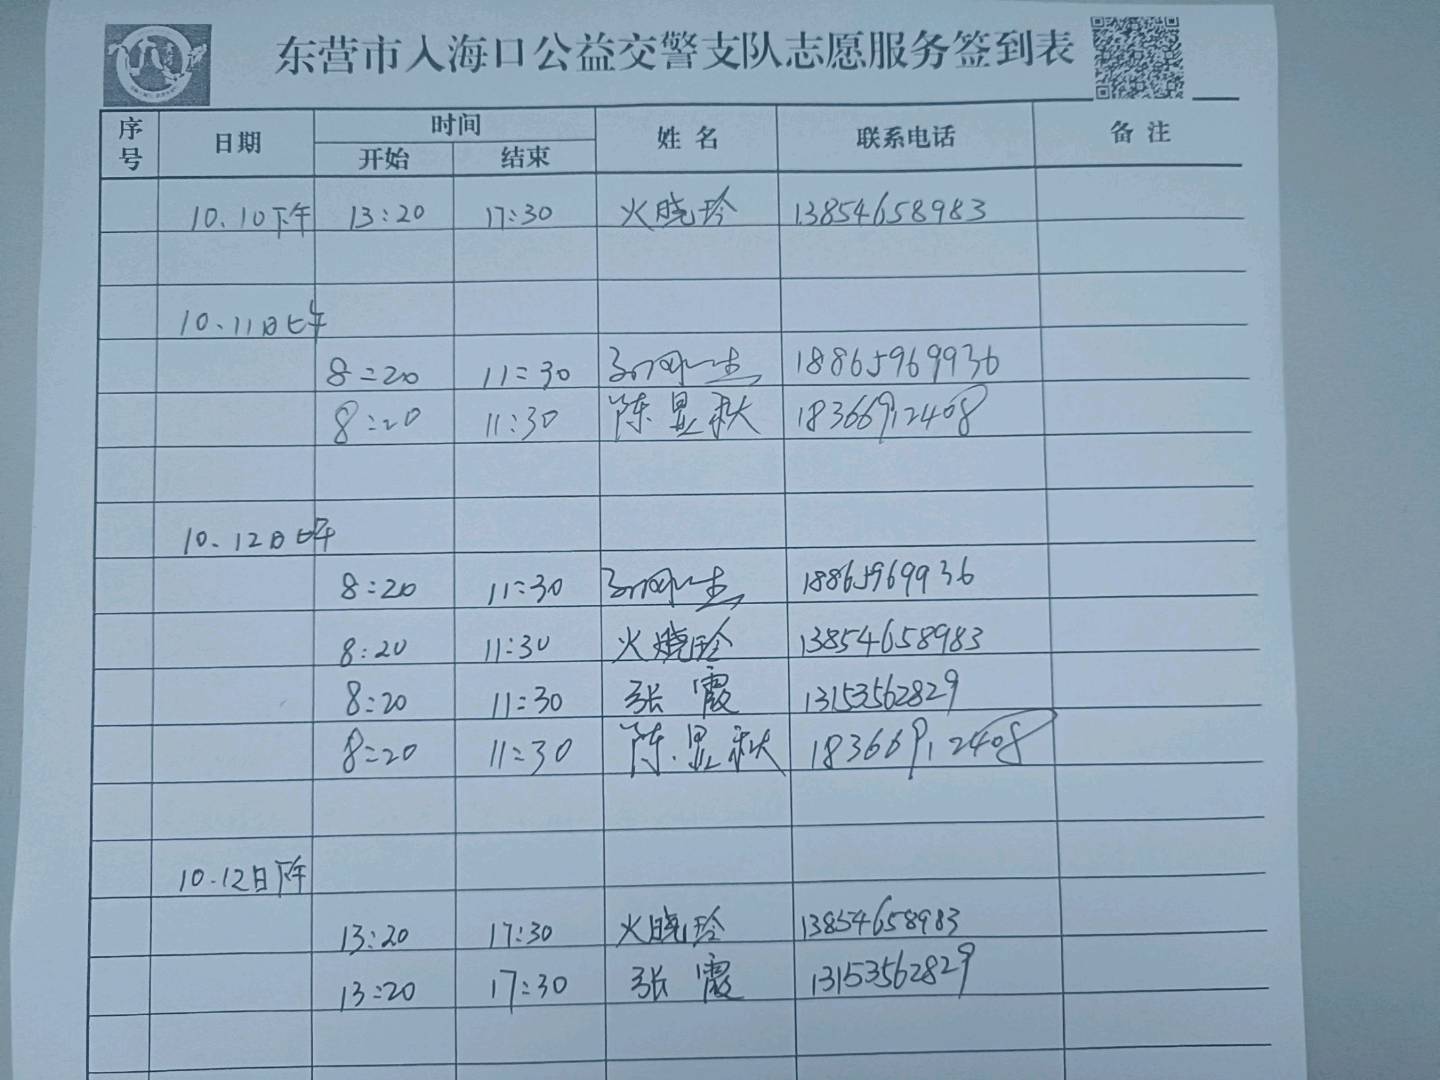 东营市入海口公益交警支队志愿服务签到表
序号 日期 时间 姓名 联系电话 备注
开始 结束
10.10下午 13:20 17:30 火晓玲 13854658983
10.11日上午
8:20 11:30 18865969936
8:20 11:30 陈显秋 18366912408
10.12日上午
8:20 11:30 18865969936
8:20 11:30 火晓玲 13854658983
8:20 11:30 张霞 13153562829
8:20 11:30 陈显秋 18366912408
10.12日下午
13:20 17:30 火晓玲 13854658983
13:20 17:30 张霞 13153562829